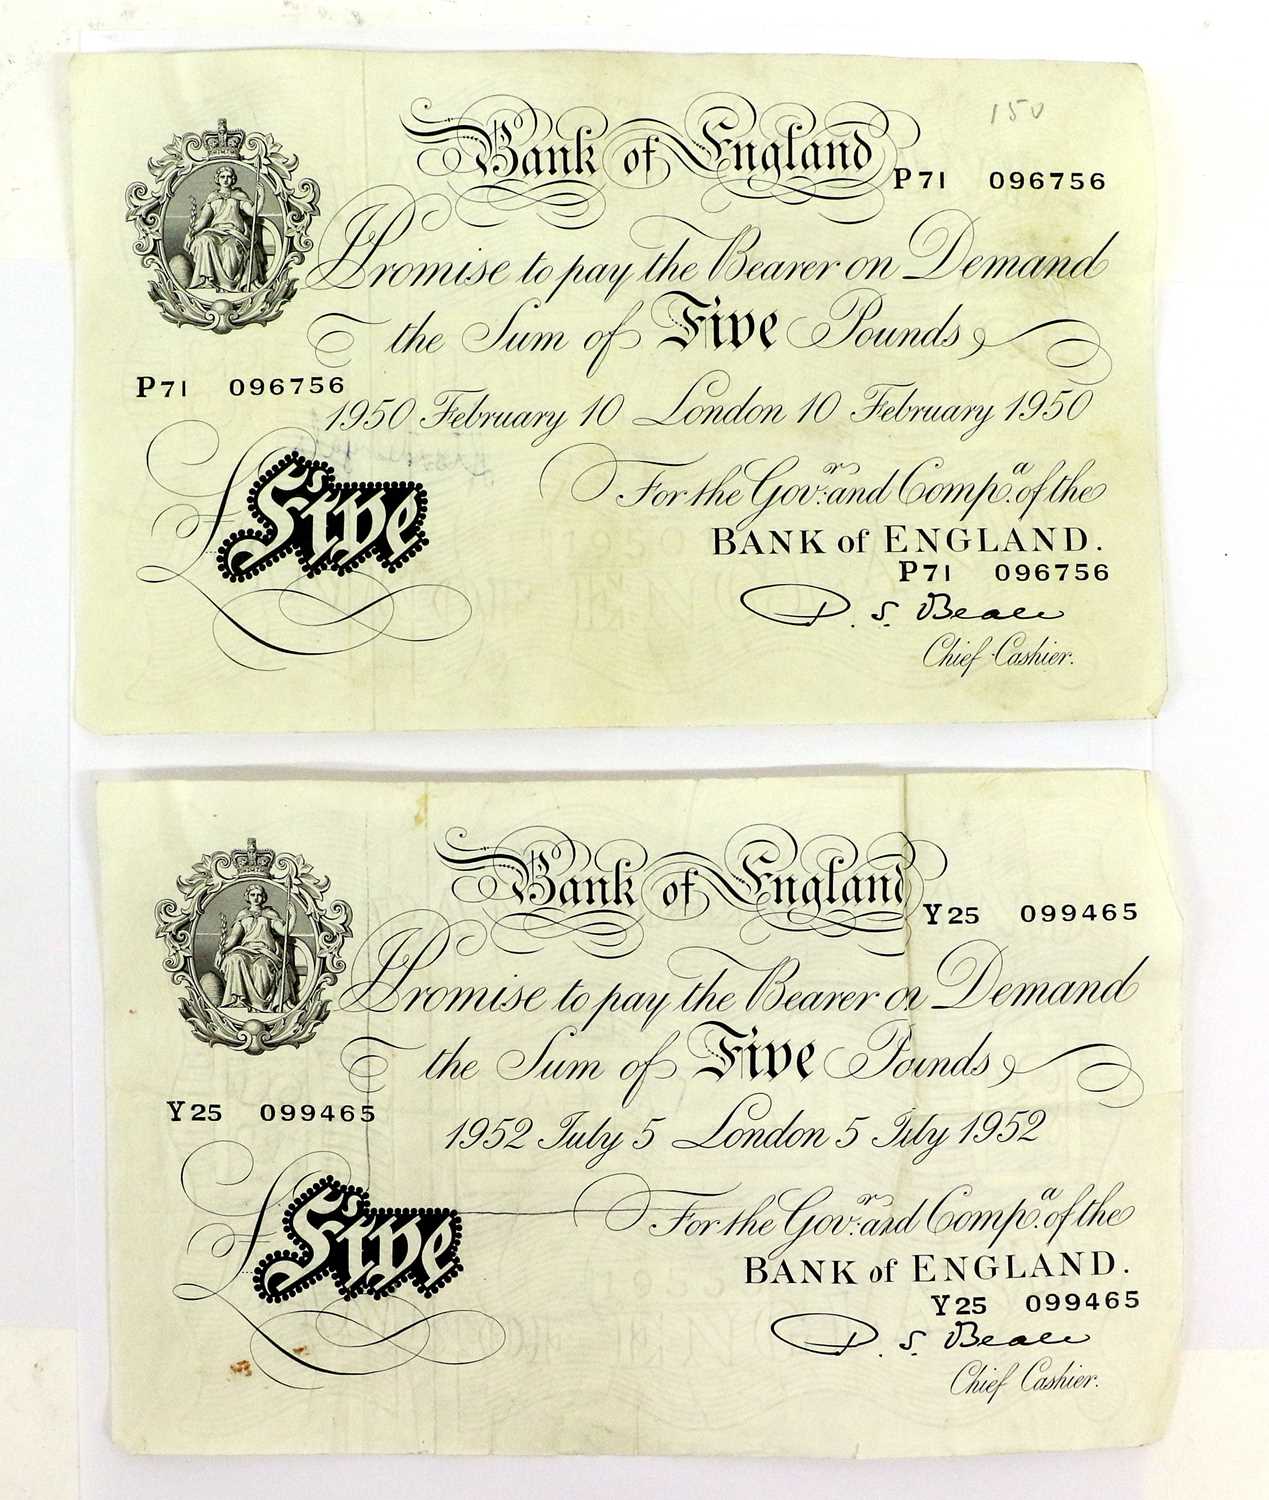 150
Bank of England
P71 096756
I Promise to pay the Bearer on Demand
the Sum of Five Pounds
P71 096756
1950 February 10 London 10 February 1950
For the Govr. and Compa. of the
£Five
BANK of ENGLAND.
P71 096756
P. S. Beale
Chief Cashier.
Bank of England
Y25 099465
I Promise to pay the Bearer on Demand
the Sum of Five Pounds
Y25 099465
1952 July 5 London 5 July 1952
For the Govr. and Compa. of the
£Five
BANK of ENGLAND.
Y25 099465
P. S. Beale
Chief Cashier.